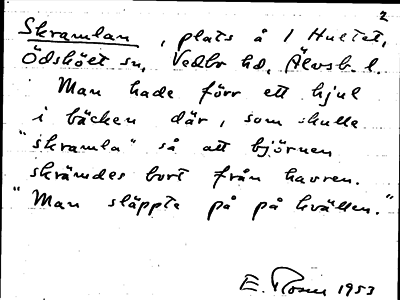 2
Skramlan, plats å 1 Hultet,
Ödsköet sn, Vedbo hd, Älvsb. l.
Man hade förr ett hjul
i bäcken där, som skulle
"skramla" så att björnen
skrämdes bort från havren.
"Man släppte på på kvällen."
E. Rosen 1953